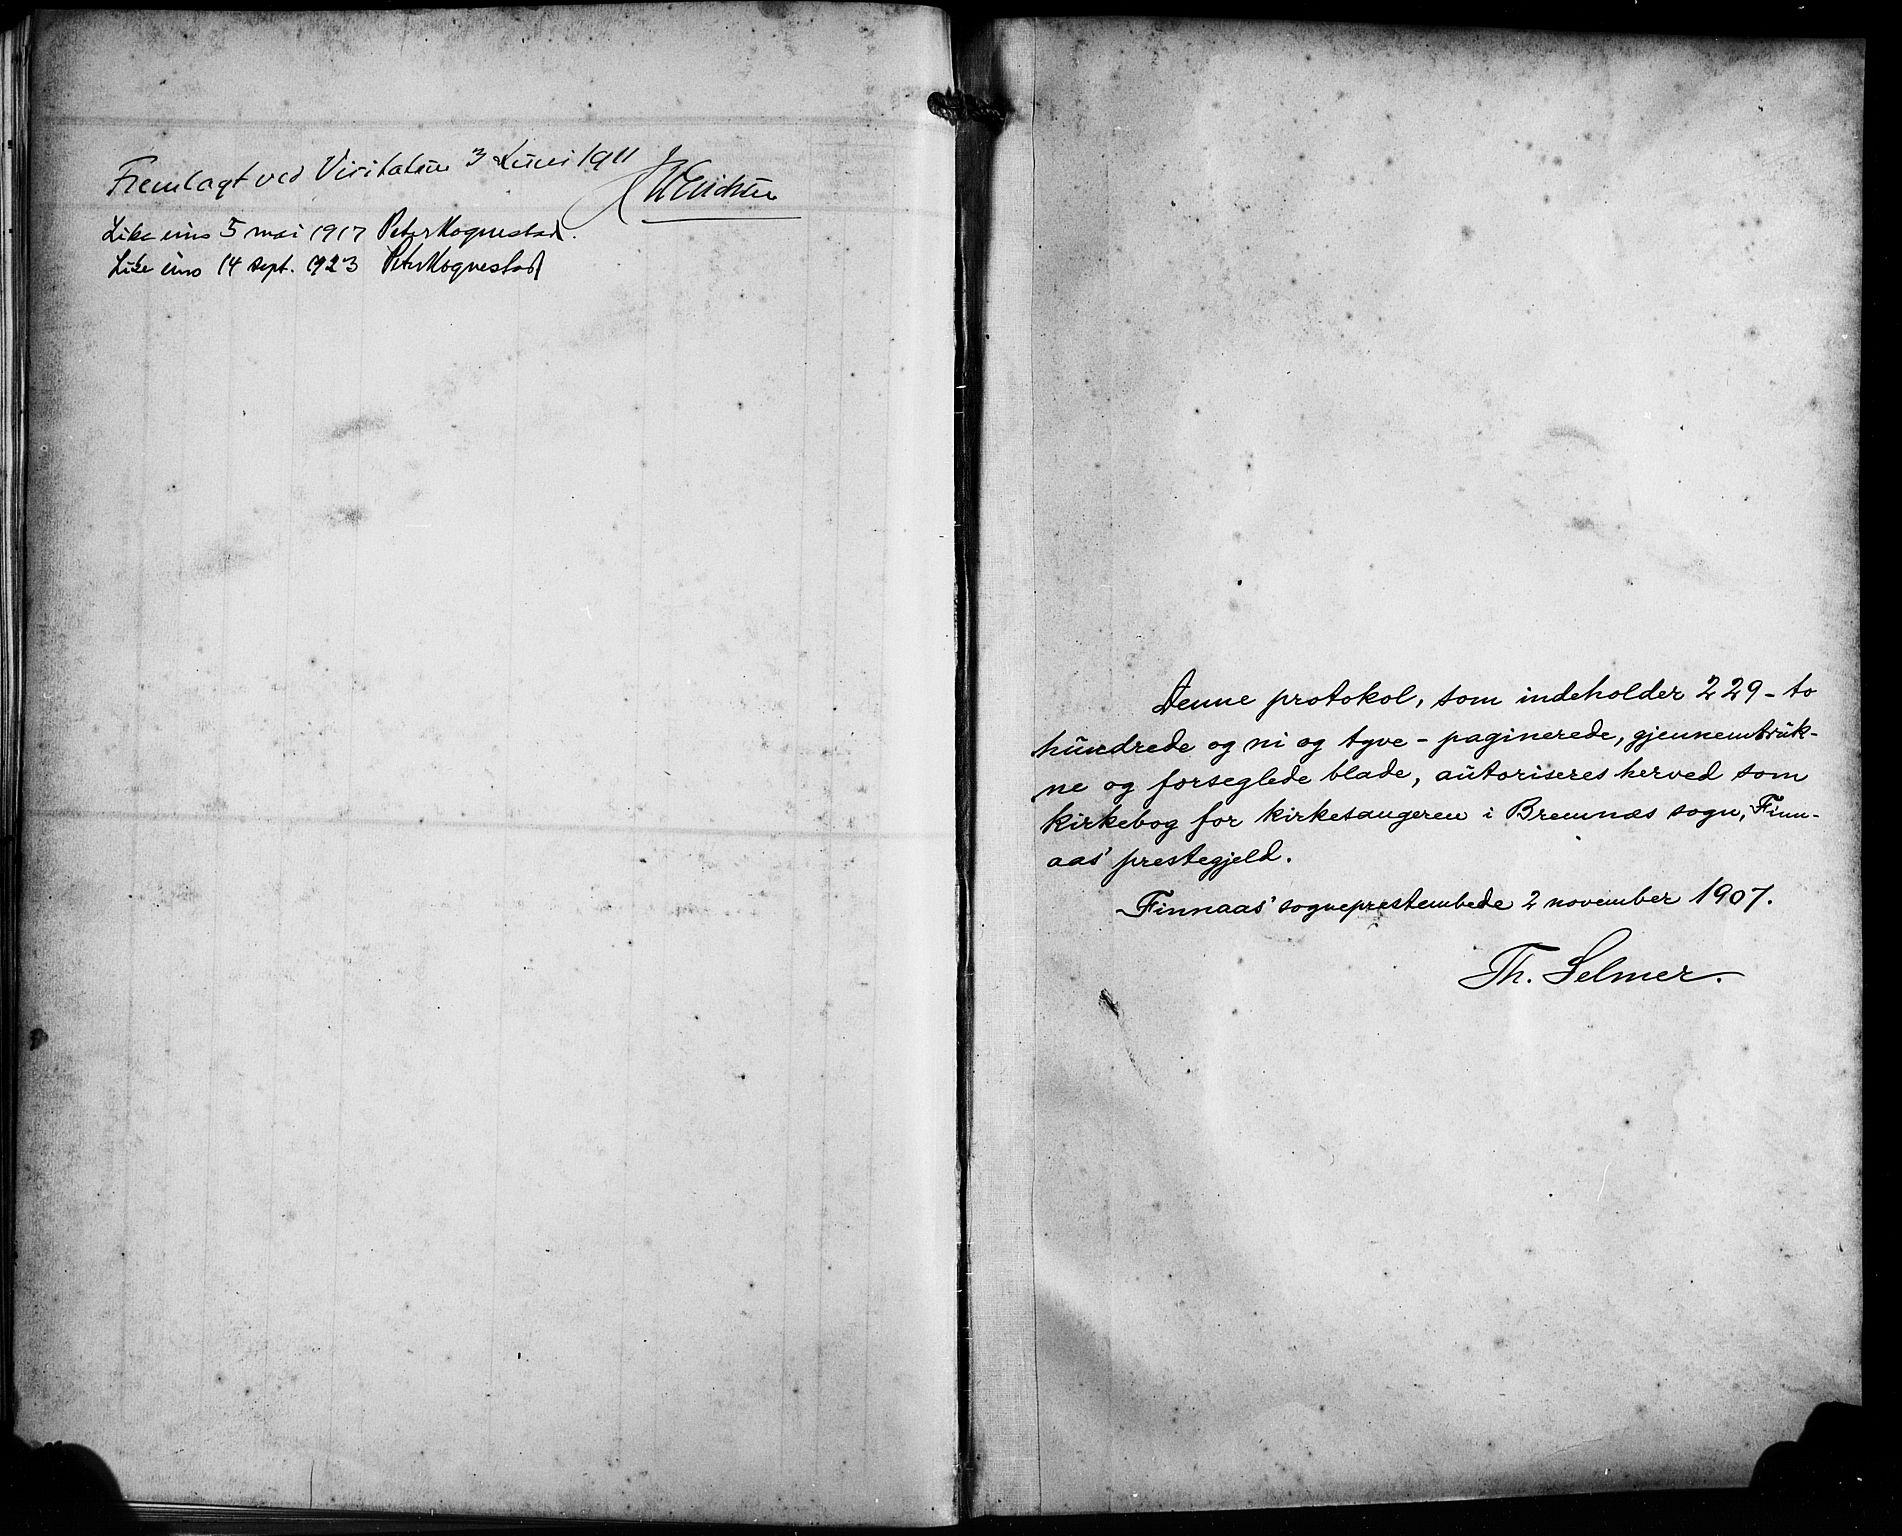 Fremlagt ved Visitatsen 3 Juni 1911
Like eins 5 mai 1917 Peter Hognestad.
Like eins 14 sept. 1923 Peter Hognestad
Denne protokol, som indeholder 229 - to
hundrede og ni og tyve - paginerede, gjennemtruk-
ne og forseglede blade, autoriseres herved som
kirkebog for kirkesangeren i Bremnæs sogn, Finn-
aas' prestegjeld.
Finnaas' sogneprestembede 2 november 1907.
Th. Selmer.